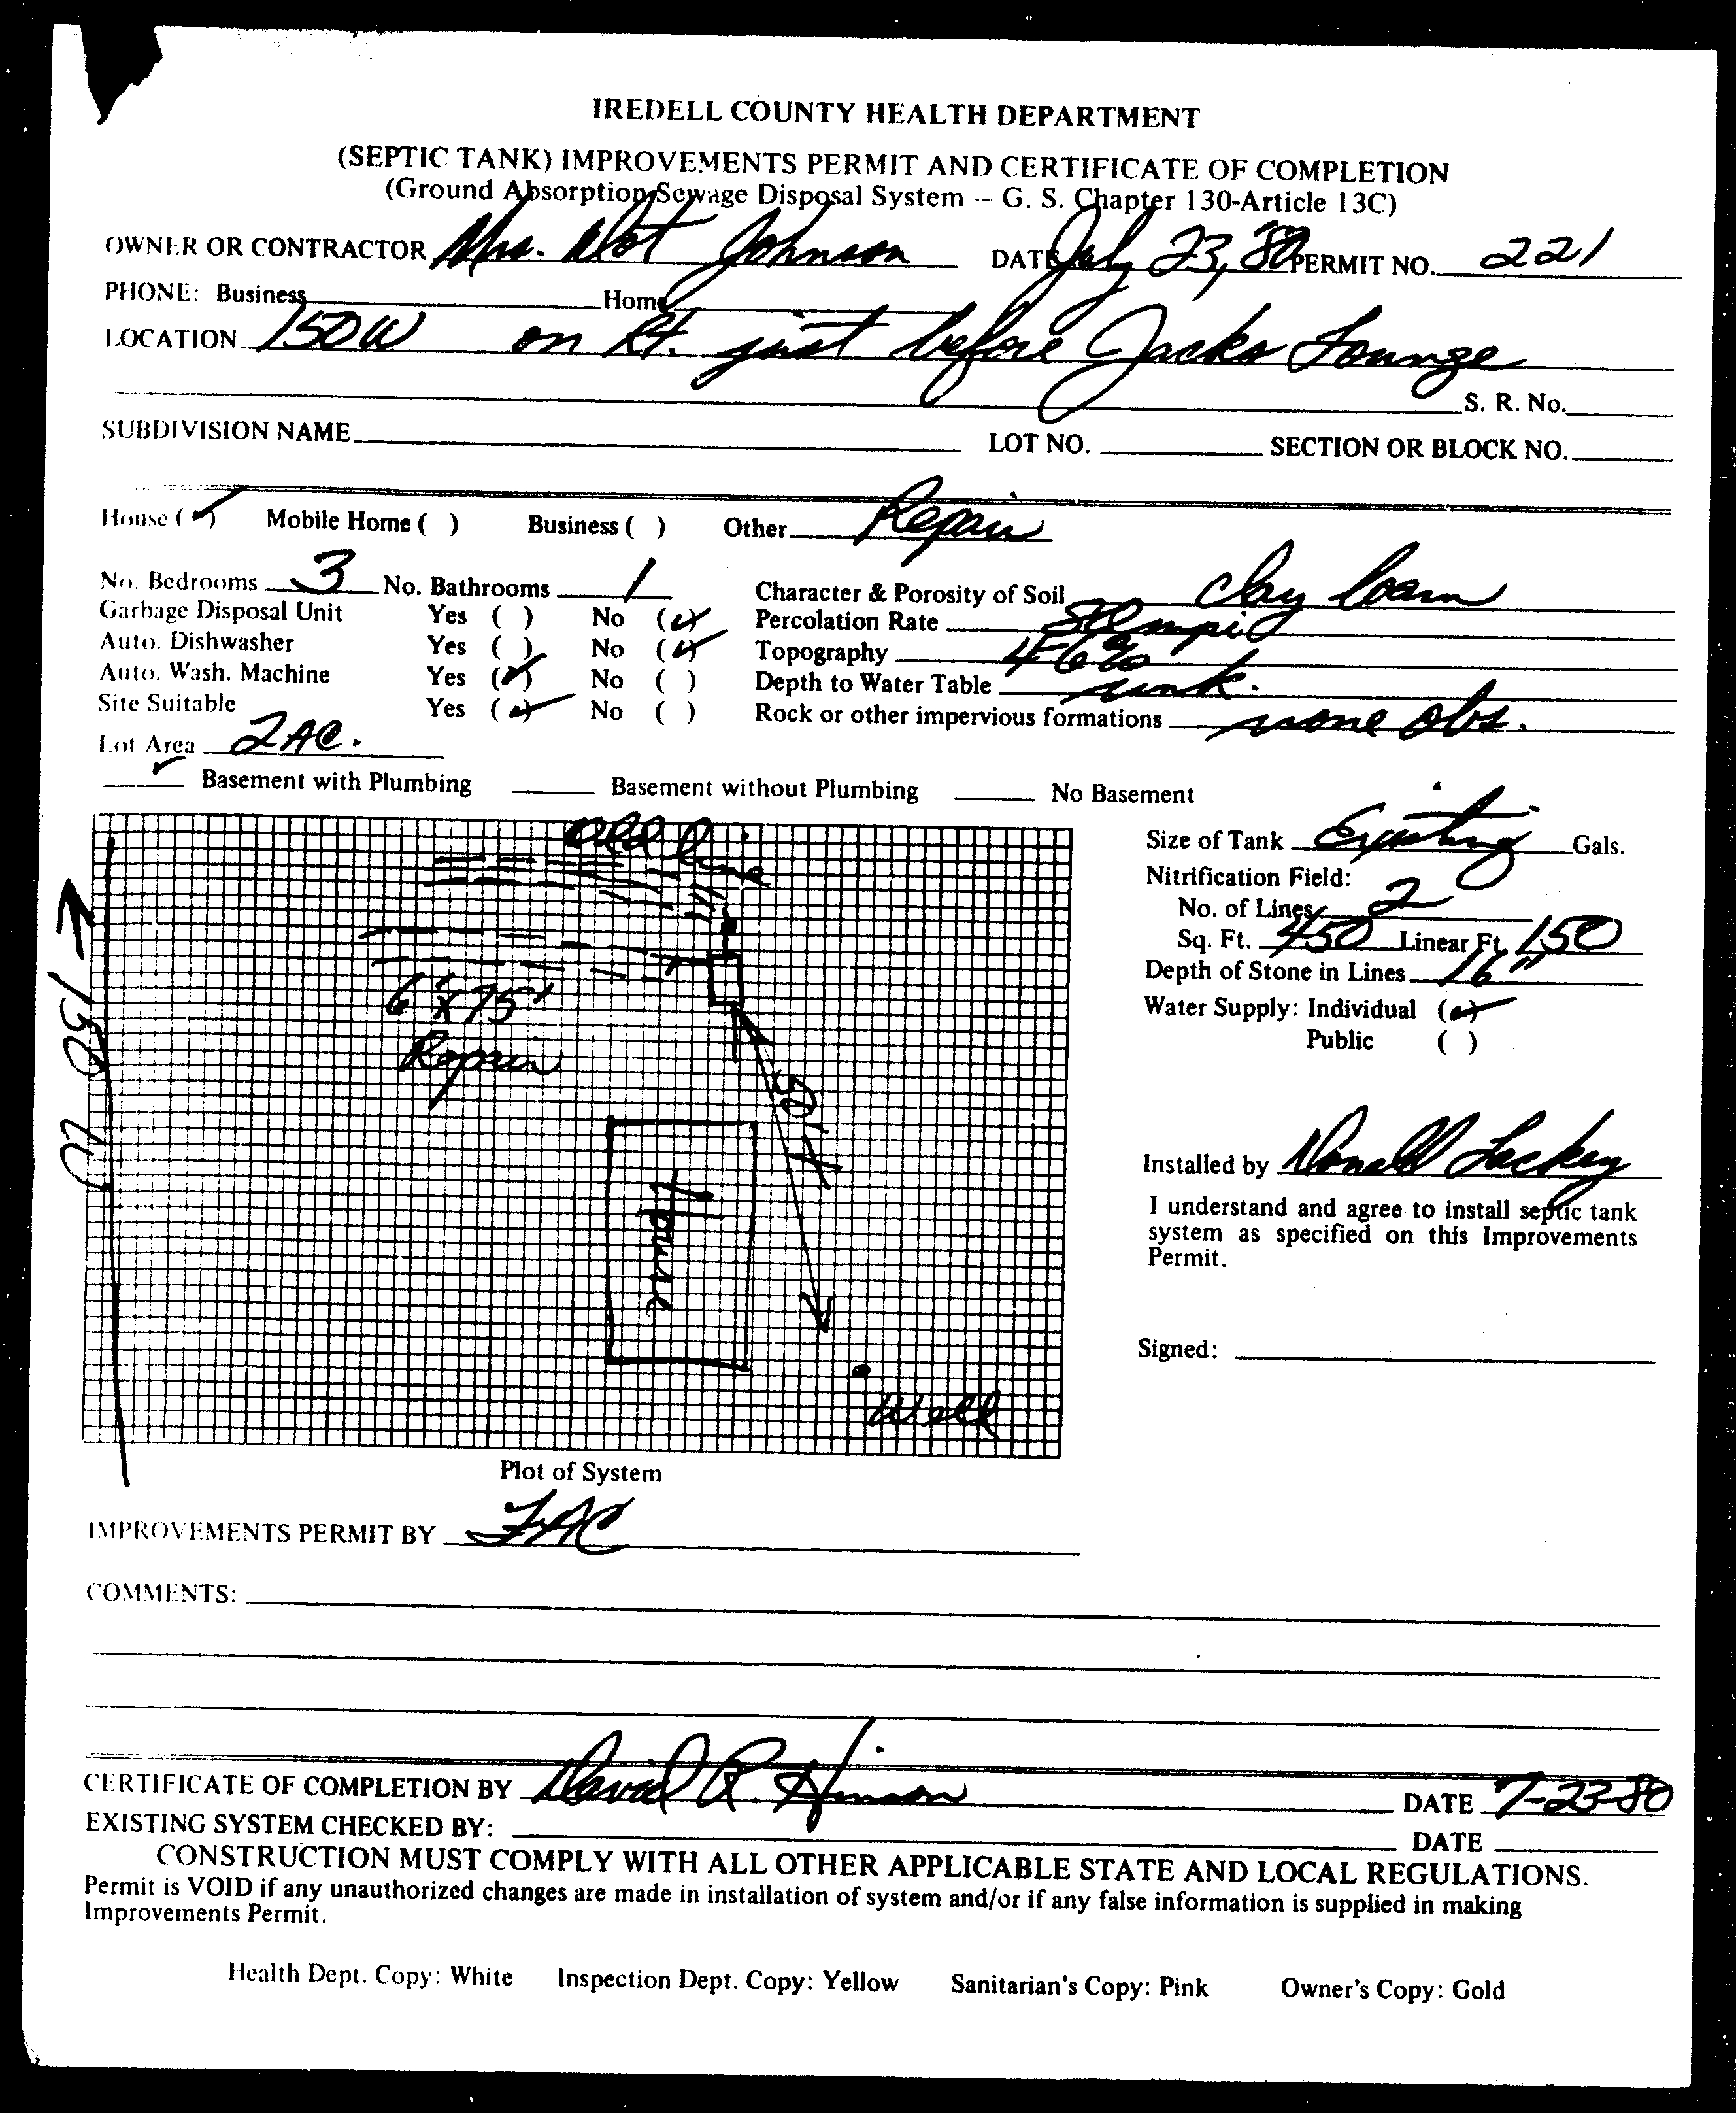 IREDELL COUNTY HEALTH DEPARTMENT
(SEPTIC TANK) IMPROVEMENTS PERMIT AND CERTIFICATE OF COMPLETION
(Ground Absorption Sewage Disposal System -- G. S. Chapter 130-Article 13C)
OWNER OR CONTRACTOR Mrs. Dot Johnson DATE July 23, 80 PERMIT NO. 221
PHONE: Business Home
LOCATION 150W on Rt. just before Jacks Lounge
S. R. No.
SUBDIVISION NAME LOT NO. SECTION OR BLOCK NO.
House (✓) Mobile Home ( ) Business ( ) Other Repair
No. Bedrooms 3 No. Bathrooms 1 Character & Porosity of Soil clay loam
Garbage Disposal Unit Yes ( ) No (✓) Percolation Rate mpi
Auto. Dishwasher Yes ( ) No (✓) Topography 4-6%
Auto. Wash. Machine Yes (✓) No ( ) Depth to Water Table unk.
Site Suitable Yes (✓) No ( ) Rock or other impervious formations none obs.
Lot Area 2 AC.
✓ Basement with Plumbing Basement without Plumbing No Basement
Size of Tank Existing Gals.
Nitrification Field:
No. of Lines 2
Sq. Ft. 450 Linear Ft. 150
Depth of Stone in Lines 16"
Water Supply: Individual (✓)
Public ( )
Installed by Donald Lackey
I understand and agree to install septic tank
system as specified on this Improvements
Permit.
Signed:
Old line
6'x75'
Repair
50'+
House
Well
150 W
Plot of System
IMPROVEMENTS PERMIT BY JAC
COMMENTS:
CERTIFICATE OF COMPLETION BY David R. Hinson DATE 7-23-80
EXISTING SYSTEM CHECKED BY: DATE
CONSTRUCTION MUST COMPLY WITH ALL OTHER APPLICABLE STATE AND LOCAL REGULATIONS.
Permit is VOID if any unauthorized changes are made in installation of system and/or if any false information is supplied in making
Improvements Permit.
Health Dept. Copy: White Inspection Dept. Copy: Yellow Sanitarian's Copy: Pink Owner's Copy: Gold